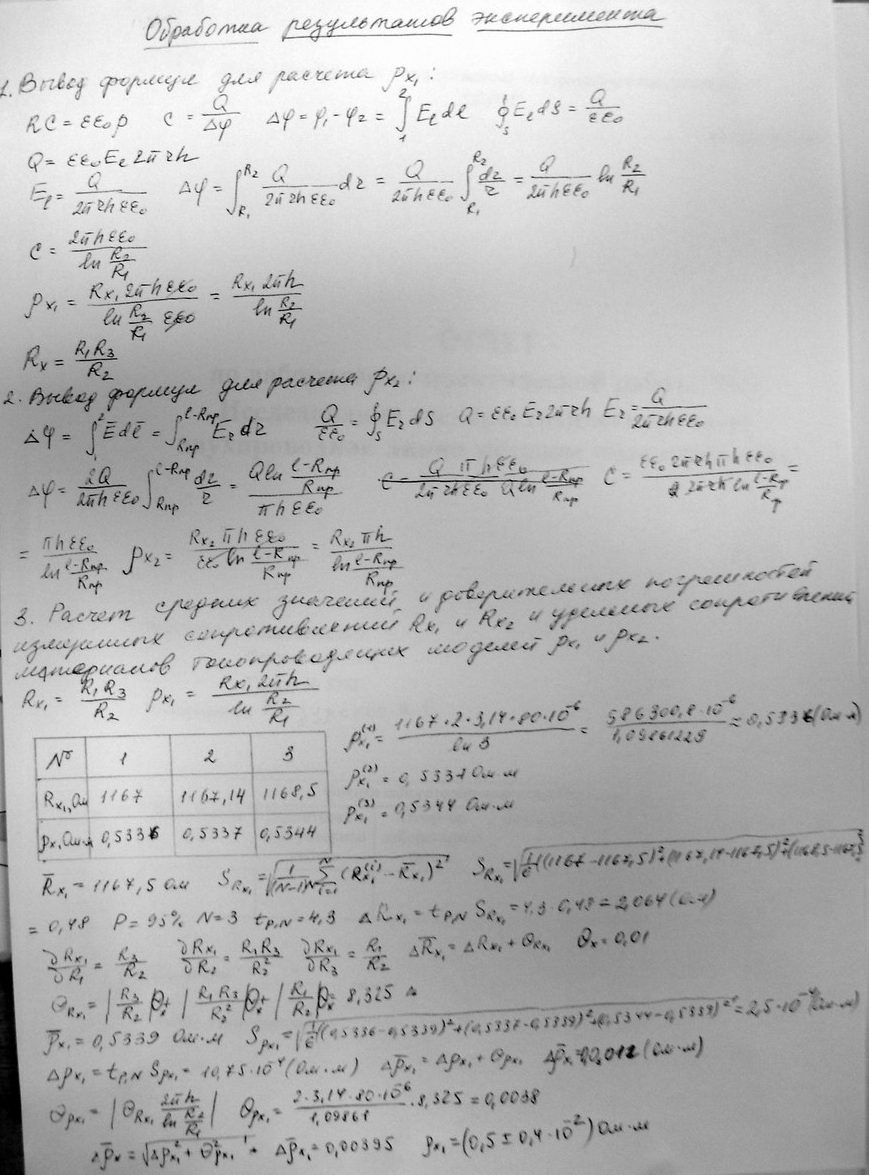 Обработка результатов эксперимента
1. Вывод формул для расчета ρx₁:
RC = εε₀ρ   C = Q/Δφ   Δφ = φ₁ - φ₂ = ∫₁² Eₗdl   ∮ₛ Eₗds = Q/εε₀
Q = εε₀Eₗ2πrh
Eₗ = Q/(2πrhεε₀)   Δφ = ∫_{R₁}^{R₂} Q/(2πrhεε₀) dr = Q/(2πhεε₀) ∫_{R₁}^{R₂} dr/r = Q/(2πhεε₀) ln R₂/R₁
C = 2πhεε₀/(ln R₂/R₁)
ρx₁ = Rx₁2πhεε₀/(ln R₂/R₁ εε₀) = Rx₁2πh/(ln R₂/R₁)
Rx = R₁R₃/R₂
2. Вывод формул для расчета ρx₂:
Δφ = ∫₁² Ēdl̄ = ∫_{Rпр}^{l-Rпр} E_r dr   Q/εε₀ = ∮ₛ E_r ds   Q = εε₀E_r2πrh   E_r = Q/(2πrhεε₀)
Δφ = 2Q/(2πhεε₀) ∫_{Rпр}^{l-Rпр} dr/r = Q ln((l-Rпр)/Rпр)/(πhεε₀)
= πhεε₀/(ln (l-Rпр)/Rпр)   ρx₂ = Rx₂πhεε₀/(εε₀ ln (l-Rпр)/Rпр) = Rx₂πh/(ln (l-Rпр)/Rпр)
3. Расчет средних значений и доверительных погрешностей
измеримых сопротивлений Rx₁ и Rx₂ и удельных сопротивлений
материалов токопроводящих моделей ρx₁ и ρx₂.
Rx₁ = R₁R₃/R₂   ρx₁ = Rx₁2πh/(ln R₂/R₁)
ρx₁⁽¹⁾ = 1167·2·3,14·80·10⁻⁶/ln 3 = 586300,8·10⁻⁶/1,09861229 = 0,5336 (Ом·м)
ρx₁⁽²⁾ = 0,5337 Ом·м
ρx₁⁽³⁾ = 0,5344 Ом·м
№ 1 2 3
Rx₁, Ом 1167 1167,14 1168,5
ρx, Ом·м 0,5336 0,5337 0,5344
R̄x₁ = 1167,5 Ом   S_{Rx₁} = √(1/((N-1)N) Σ_{i=1}^{N} (Rx₁⁽ⁱ⁾ - R̄x₁)²)   S_{Rx₁} = √(1/6((1167-1167,5)²+(1167,14-1167,5)²+(1168,5-1167,5)²
= 0,48   P = 95%   N = 3   t_{P,N} = 4,3   ΔRx₁ = t_{P,N} S_{Rx₁} = 4,3·0,48 = 2,064 (Ом)
∂Rx₁/∂R₁ = R₃/R₂   ∂Rx₁/∂R₂ = R₁R₃/R₂²   ∂Rx₁/∂R₃ = R₁/R₂   ΔR̄x₁ = ΔRx₁ + θ_{Rx₁}   θx = 0,01
θ_{Rx₁} = |R₃/R₂|θx + |R₁R₃/R₂²|θx + |R₁/R₂|θx 8,325
ρ̄x₁ = 0,5339 Ом·м   S_{ρx₁} = √(1/6((0,5336-0,5339)²+(0,5337-0,5339)²+(0,5344-0,5339)²) = 2,5·10⁻⁴ (Ом·м)
Δρx₁ = t_{P,N} S_{ρx₁} = 10,75·10⁻⁴ (Ом·м)   Δρ̄x₁ = Δρx₁ + θ_{ρx₁}   Δρ̄x₁ = 0,012 (Ом·м)
θ_{ρx₁} = |θ_{Rx₁} 2πh/(ln R₂/R₁)|   θ_{ρx₁} = 2·3,14·80·10⁻⁶/1,09861 · 8,325 = 0,0038
Δρ̄x = √(Δρx₁² + θ²_{ρx₁})   Δρ̄x₁ = 0,00395   ρx₁ = (0,5 ± 0,4·10⁻²) Ом·м